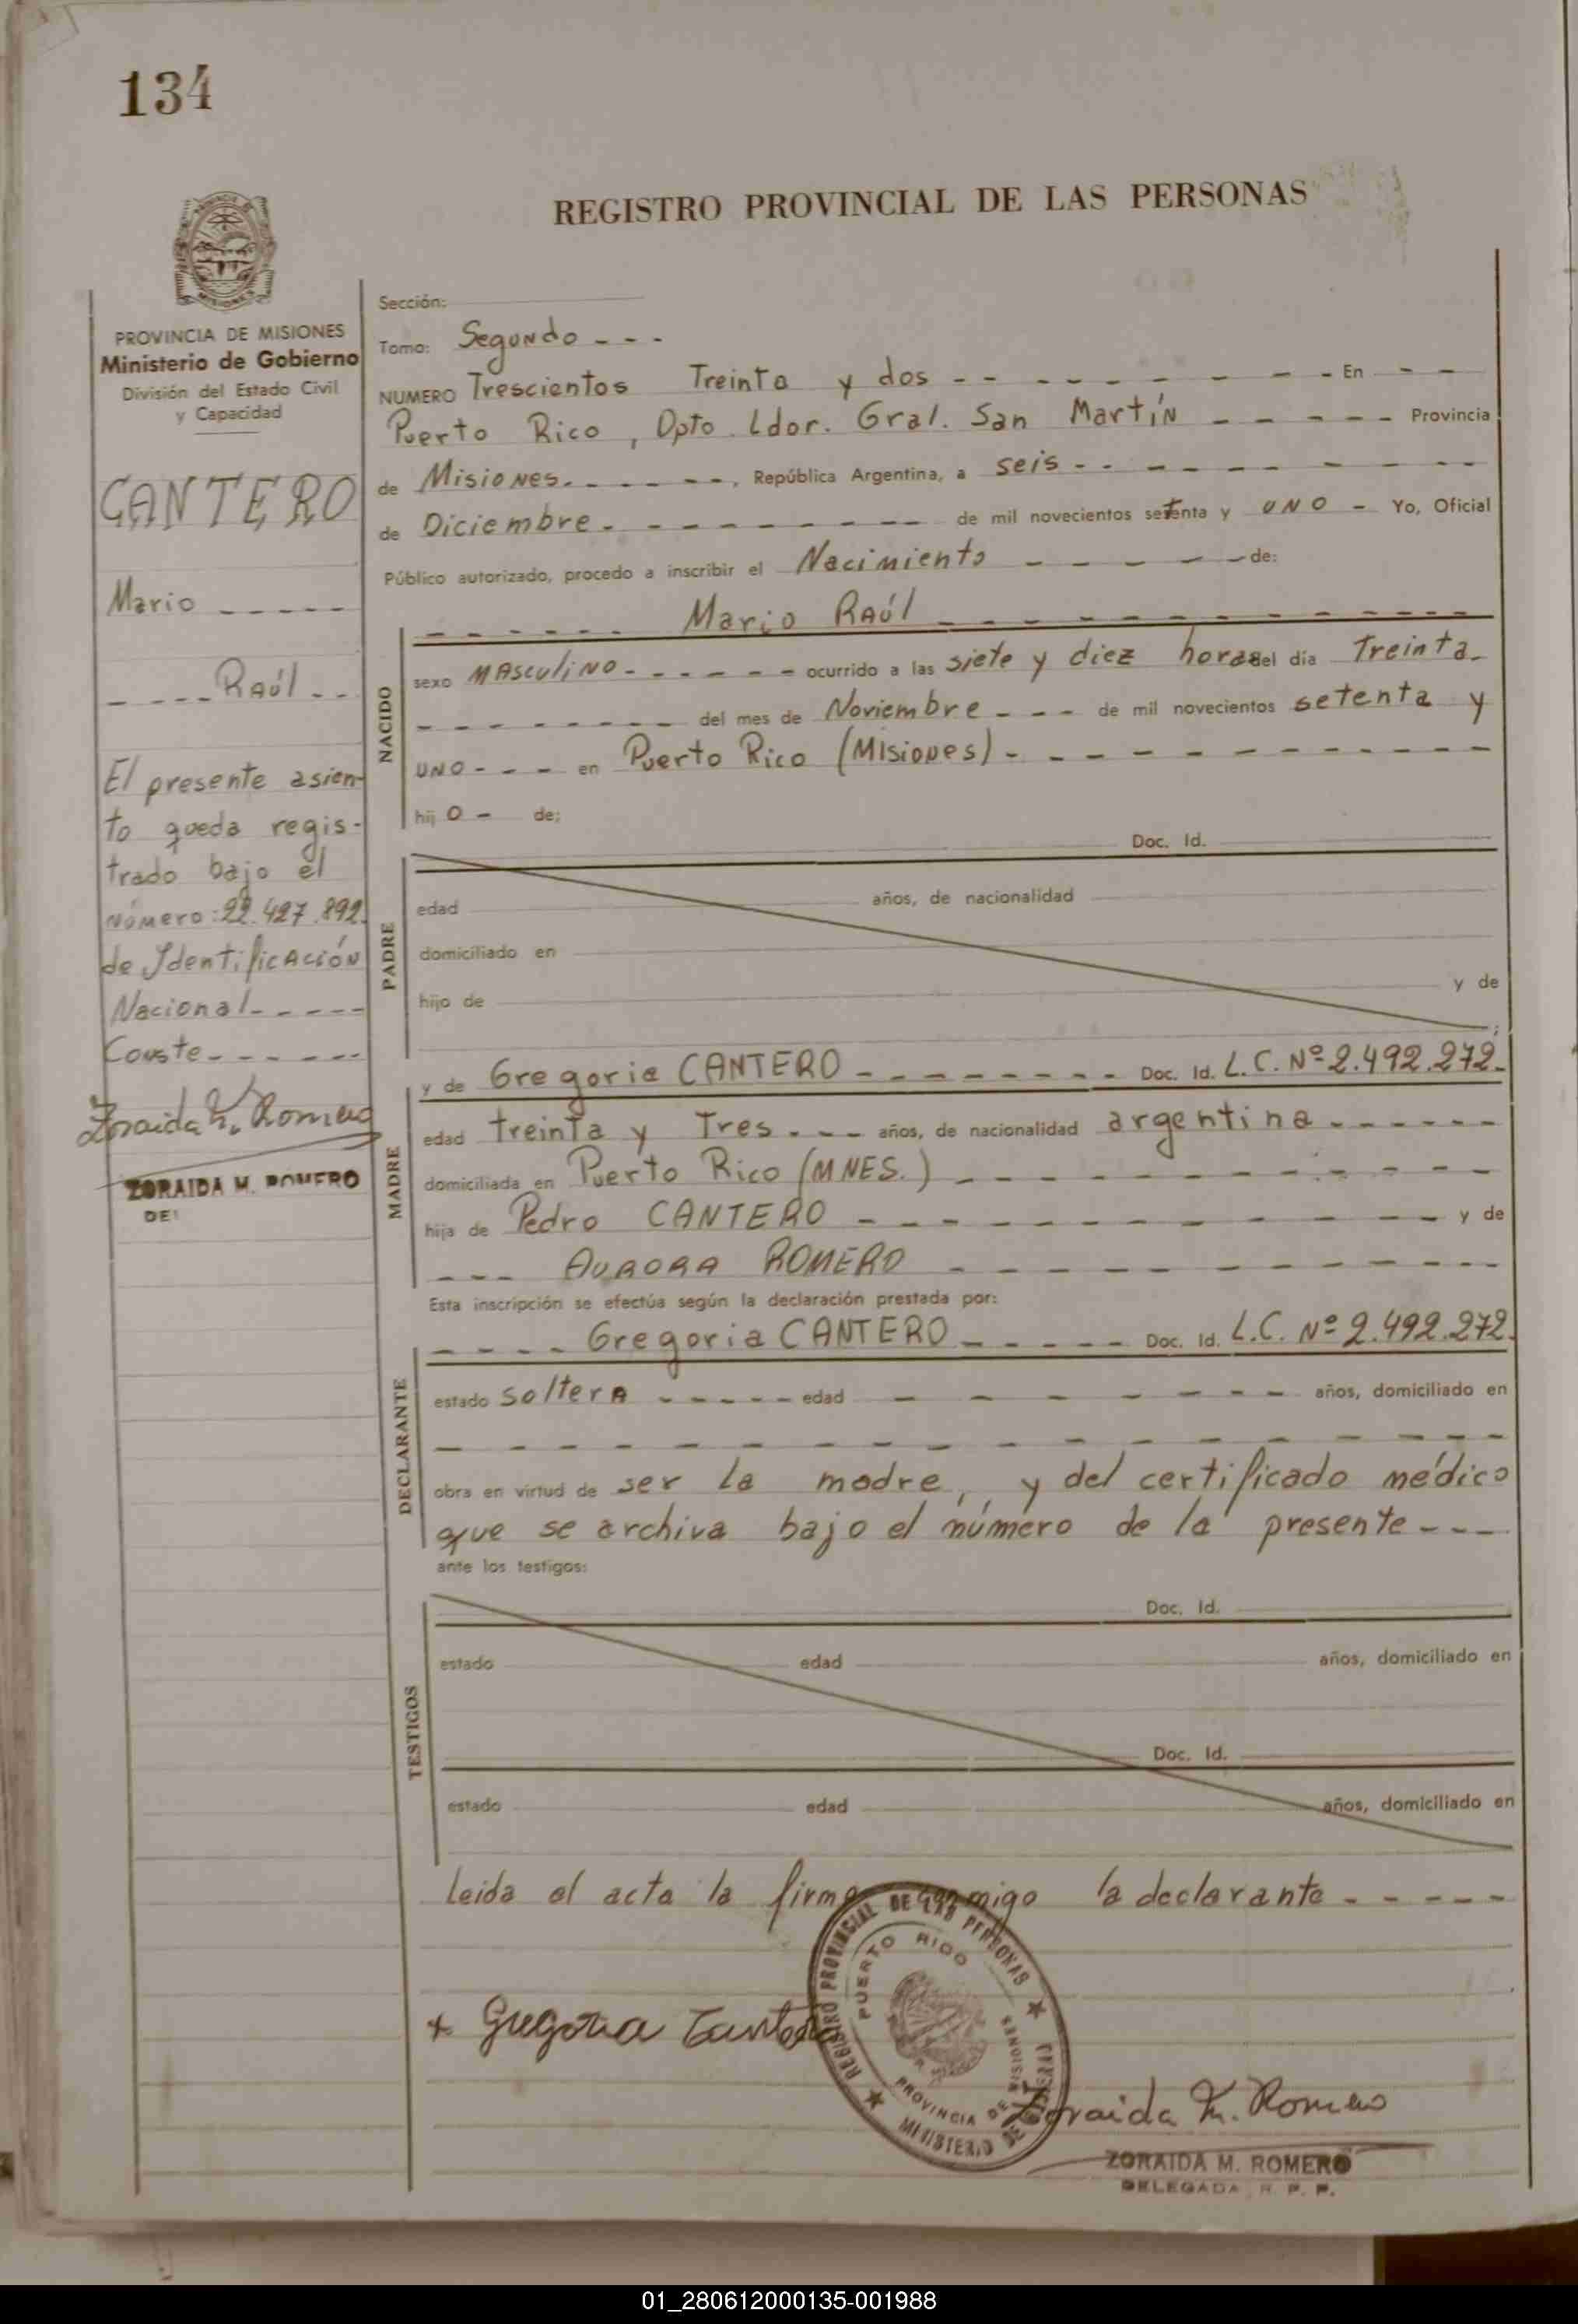 134
REGISTRO PROVINCIAL DE LAS PERSONAS
PROVINCIA DE MISIONES
Ministerio de Gobierno
División del Estado Civil
y Capacidad
CANTERO
Mario - - - - -
- - - - Raúl - -
El presente asien-
to queda regis-
trado bajo el
número: 22.427.892.
de Identificación
Nacional - - - - -
Conste - - - - - -
Zoraida M. Romero
ZORAIDA M. ROMERO
DE
Sección:
Tomo: Segundo - - -
NUMERO Trescientos Treinta y dos - - - - - - - - - En - -
Puerto Rico, Dpto. Ldor. Gral. San Martín - - - - - Provincia
de Misiones. - - - - - -, República Argentina, a seis - - - - - - - - -
de Diciembre. - - - - - - - - de mil novecientos setenta y uno - Yo, Oficial
Público autorizado, procedo a inscribir el Nacimiento - - - - - de:
- - - - - - Mario Raúl - - - - - - - - - - -
NACIDO
sexo Masculino - - - - - - ocurrido a las siete y diez horas del día Treinta -
- - - - - - - - del mes de Noviembre - - - de mil novecientos setenta y
uno - - - en Puerto Rico (Misiones) - - - - - - - - - - -
hij o - de:
PADRE
Doc. Id.
edad años, de nacionalidad
domiciliado en
hijo de y de
;
MADRE
y de Gregoria CANTERO - - - - - - - - Doc. Id. L.C. Nº 2.492.272.
edad treinta y Tres - - - años, de nacionalidad argentina - - - - - -
domiciliada en Puerto Rico (MNES.) - - - - - - - - - - -
hija de Pedro CANTERO - - - - - - - - - - - y de
- - - AURORA ROMERO - - - - - - - - - - -
Esta inscripción se efectúa según la declaración prestada por:
DECLARANTE
- - - - Gregoria CANTERO - - - - - Doc. Id. L.C. Nº 2.492.272.
estado soltera - - - - - edad - - - - - - - - años, domiciliado en
- - - - - - - - - - - - - - - - -
obra en virtud de ser la madre, y del certificado médico
que se archiva bajo el número de la presente - - -
ante los testigos:
TESTIGOS
Doc. Id.
estado edad años, domiciliado en
Doc. Id.
estado edad años, domiciliado en
leida el acta la firma conmigo la declarante - - - - -
REGISTRO PROVINCIAL DE LAS PERSONAS
PUERTO RICO
PROVINCIA DE MISIONES
MINISTERIO DE
+ Gregoria Cantero
Zoraida M. Romero
ZORAIDA M. ROMERO
DELEGADA R. P. P.
01_280612000135-001988